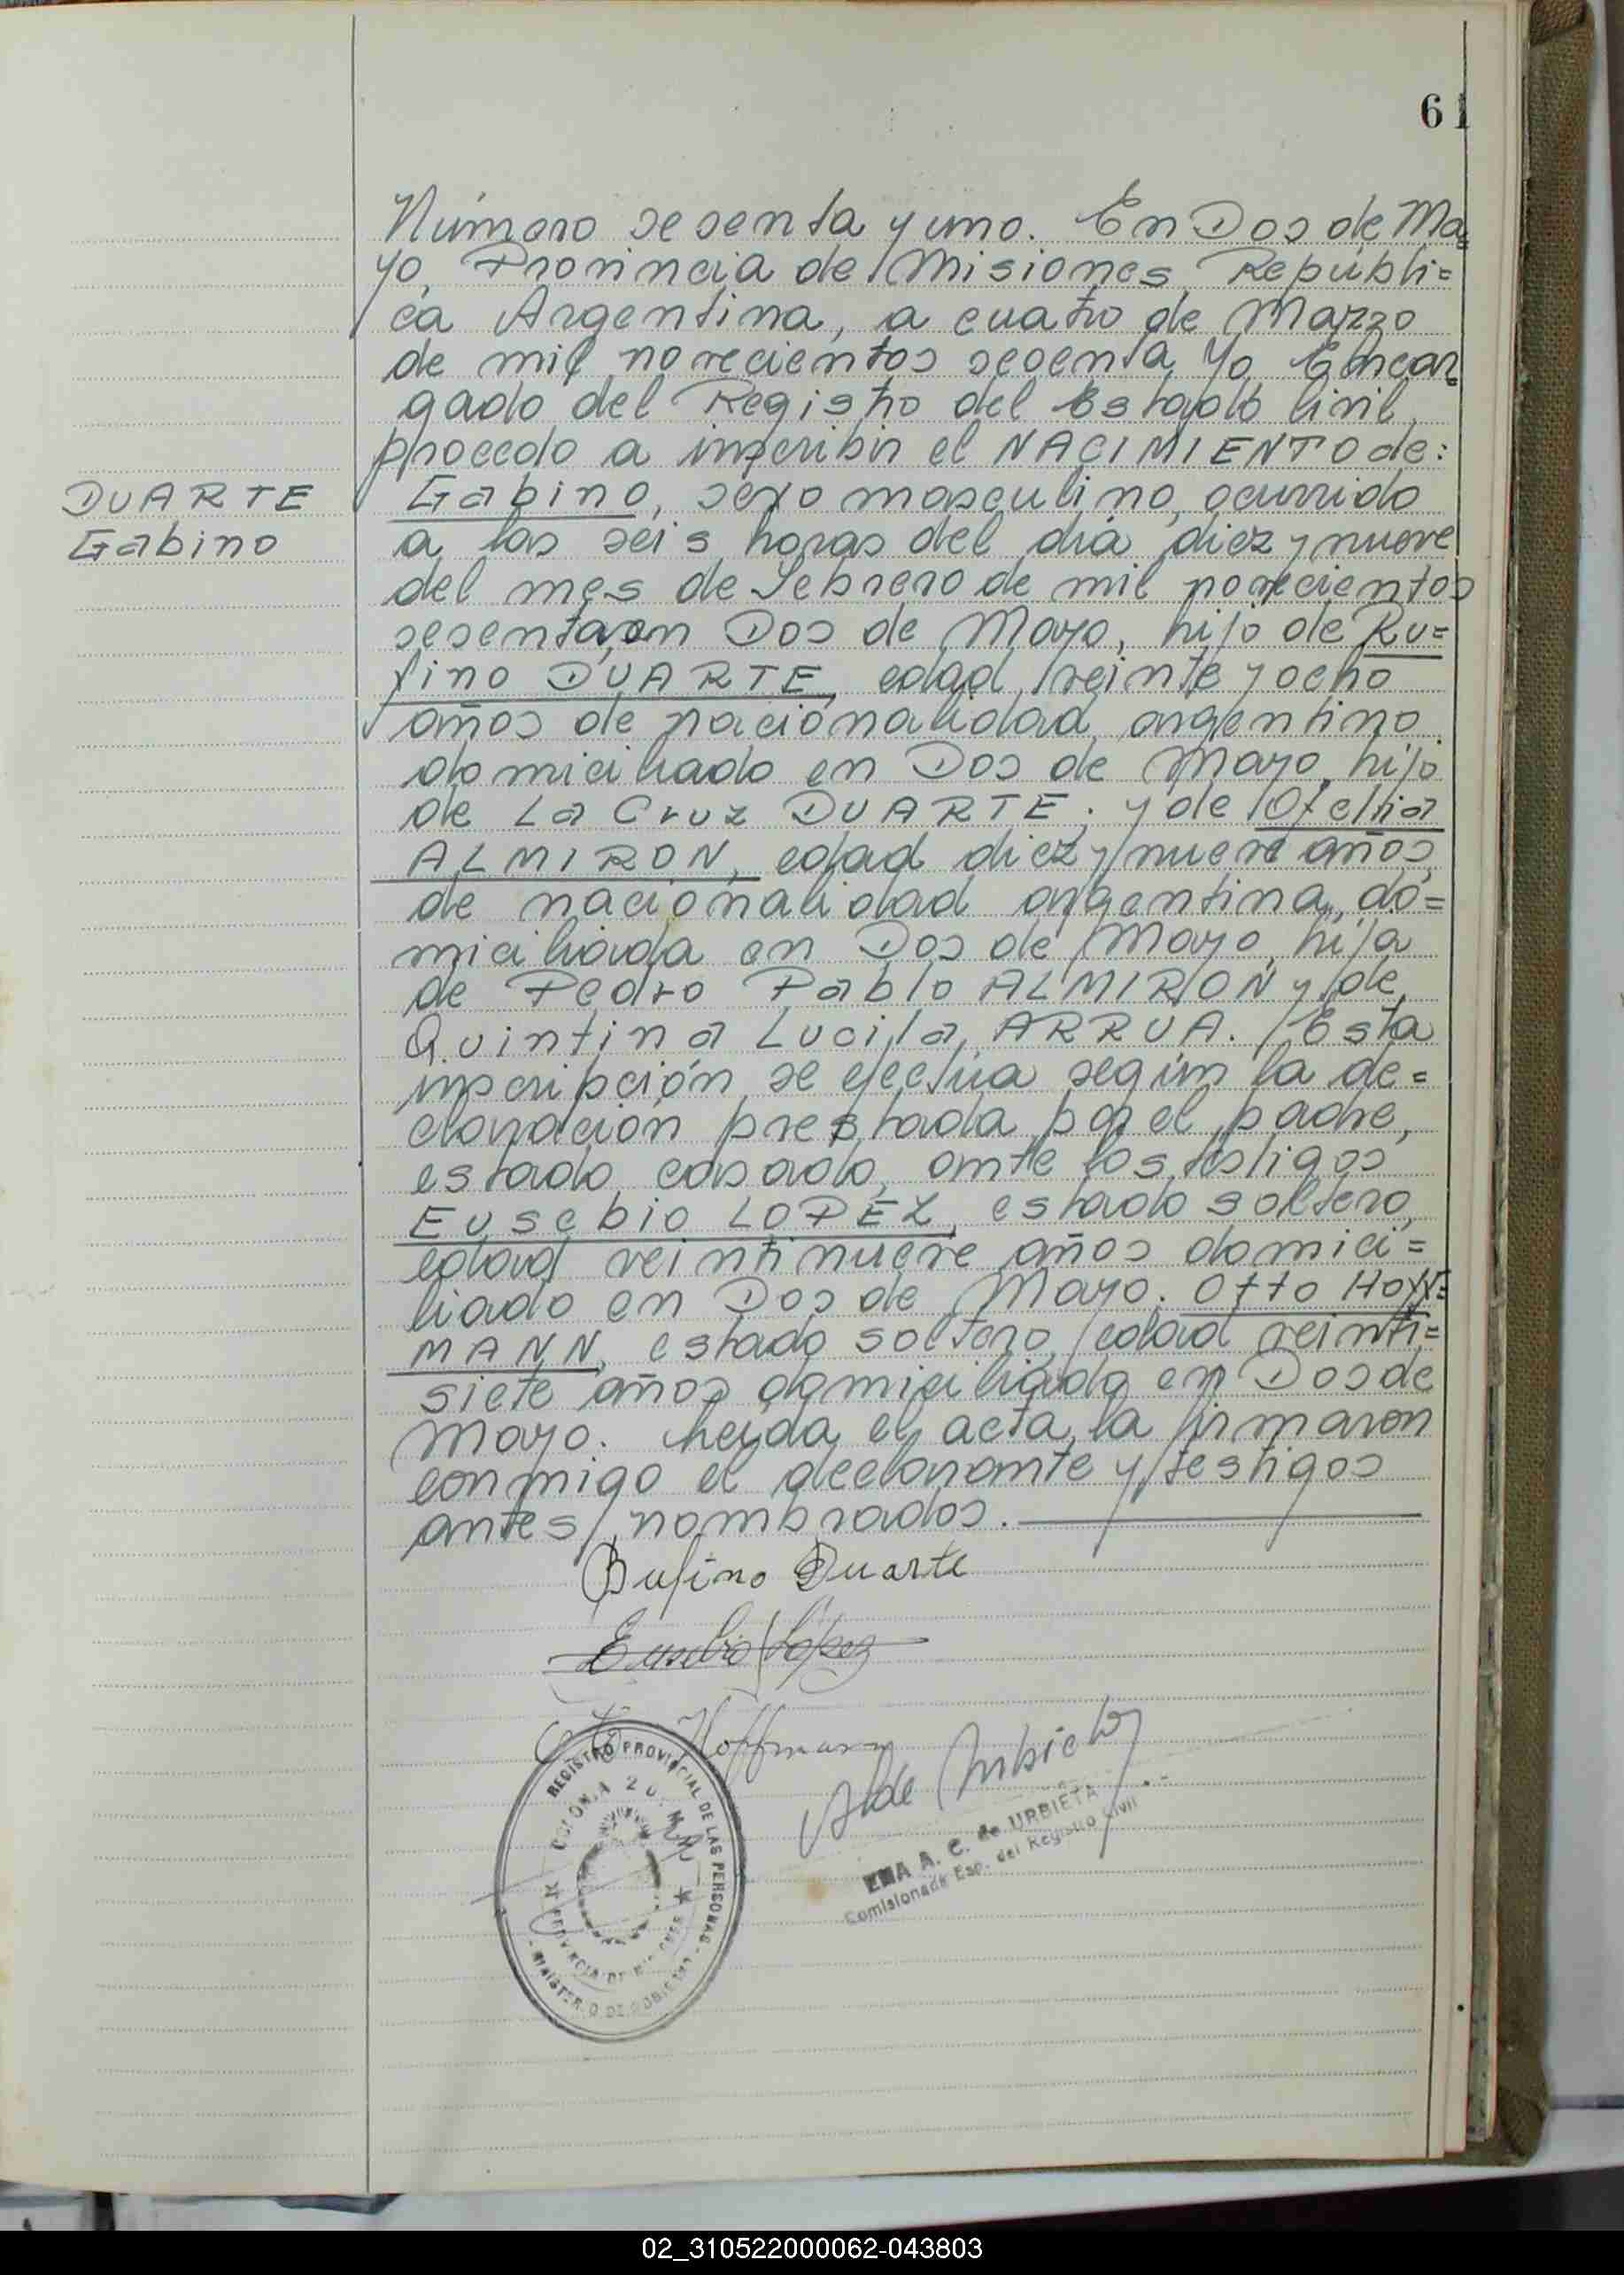 61
Número sesenta y uno. En Dos de Ma=
yo, Provincia de Misiones, Repúbli=
ca Argentina, a cuatro de Marzo
de mil novecientos sesenta Yo Encar
gado del Registro del Estado Civil,
procedo a inscribir el NACIMIENTO de:
DUARTE
Gabino
Gabino, sexo masculino, ocurrido
a las seis horas del día diez y nueve
del mes de Febrero de mil novecientos
sesenta, en Dos de Mayo, hijo de Ru=
fino DUARTE, edad veinte y ocho
años de nacionalidad argentino
domiciliado en Dos de Mayo, hijo
de La Cruz DUARTE. y de Ofelia
ALMIRON, edad diez y nueve años,
de nacionalidad argentina, do=
miciliada en Dos de Mayo, hija
de Pedro Pablo ALMIRON y de
Quintina Lucila ARRUA. Esta
inscripción se efectúa según la de=
claración prestada por el padre,
estado casado, ante los testigos
Eusebio LOPEZ, estado soltero,
edad veintinueve años domici=
liado en Dos de Mayo. Otto HOFF=
MANN, estado soltero, edad veinti=
siete años domiciliado en Dos de
Mayo. Leída el acta, la firmaron
conmigo el declarante y testigos
antes nombrados.
Rufino Duarte
Eusebio López
Otto Hoffmann
A de Urbieta
REGISTRO PROVINCIAL DE LAS PERSONAS
COLONIA 2 DE MAYO
PROVINCIA DE MISIONES
MINISTERIO DE GOBIERNO
EMA A. C. de URBIETA
Comisionada Esp. del Registro Civil
02_310522000062-043803